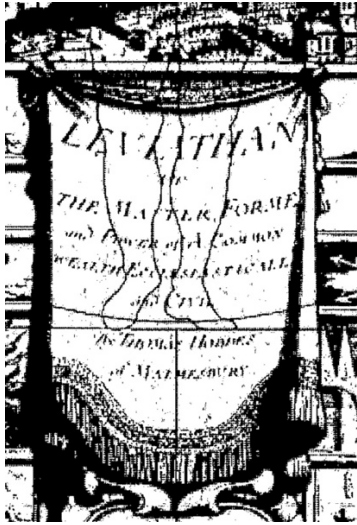 LEVIATHAN
Or
THE MATTER, FORME
and POWER of A COMMON
WEALTH ECCLESIASTICALL
and CIVIL
By THOMAS HOBBES
of MALMESBURY